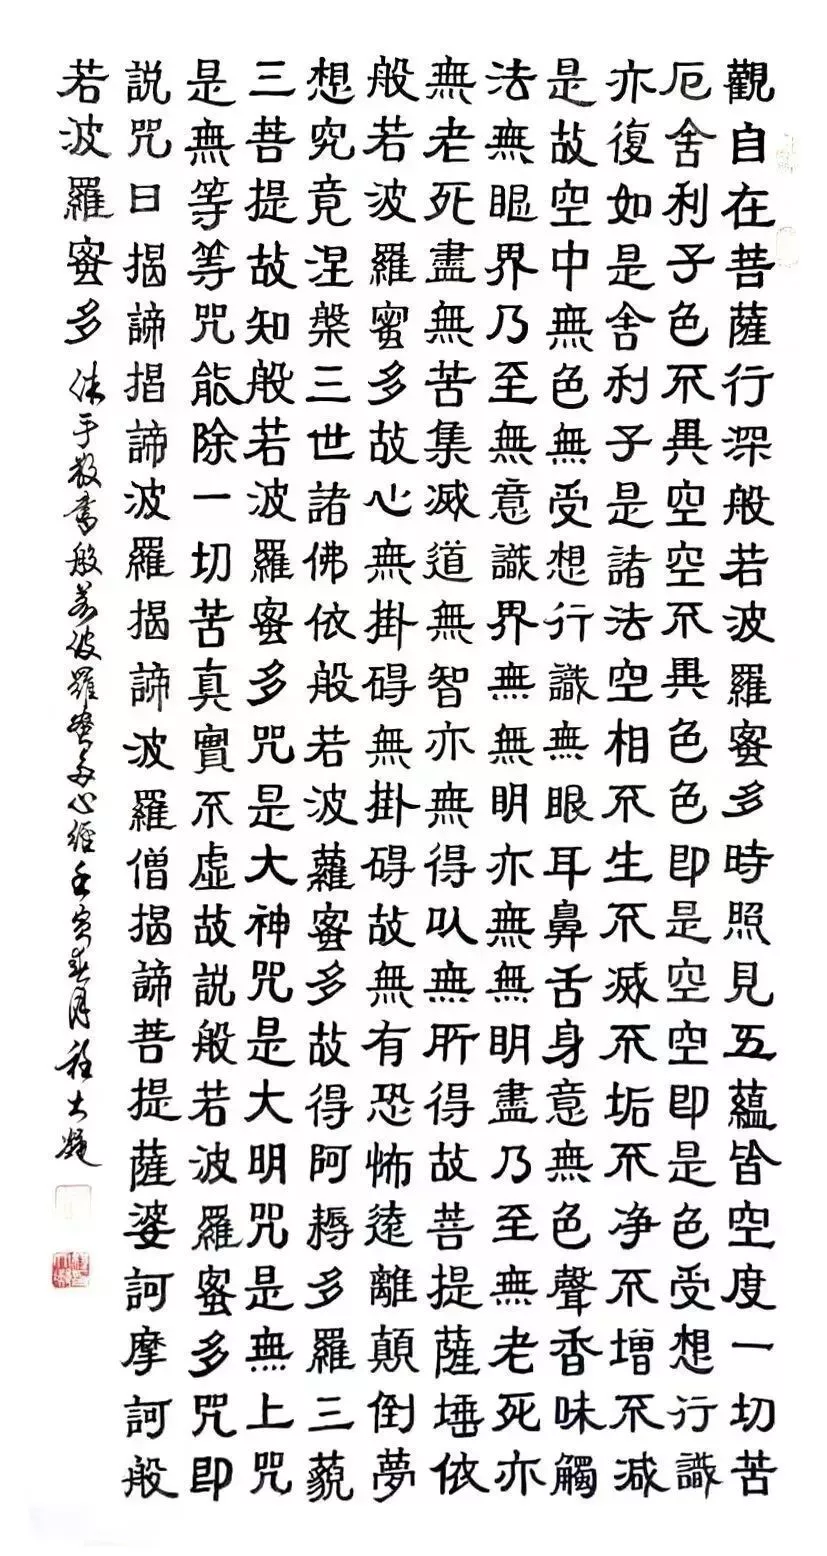 觀自在菩薩行深般若波羅蜜多時照見五蘊皆空度一切苦
厄舍利子色不異空空不異色色即是空空即是色受想行識
亦復如是舍利子是諸法空相不生不滅不垢不净不增不減
是故空中無色無受想行識無眼耳鼻舌身意無色聲香味觸
法無眼界乃至無意識界無無明亦無無明盡乃至無老死亦
無老死盡無苦集滅道無智亦無得以無所得故菩提薩埵依
般若波羅蜜多故心無掛碍無掛碍故無有恐怖遠離顛倒夢
想究竟涅槃三世諸佛依般若波蘿蜜多故得阿耨多羅三藐
三菩提故知般若波羅蜜多咒是大神咒是大明咒是無上咒
是無等等咒能除一切苦真實不虛故説般若波羅蜜多咒即
説咒曰揭諦揭諦波羅揭諦波羅僧揭諦菩提薩婆訶摩訶般
若波羅蜜多 手敬書般若波羅蜜多心經壬寅春月程大